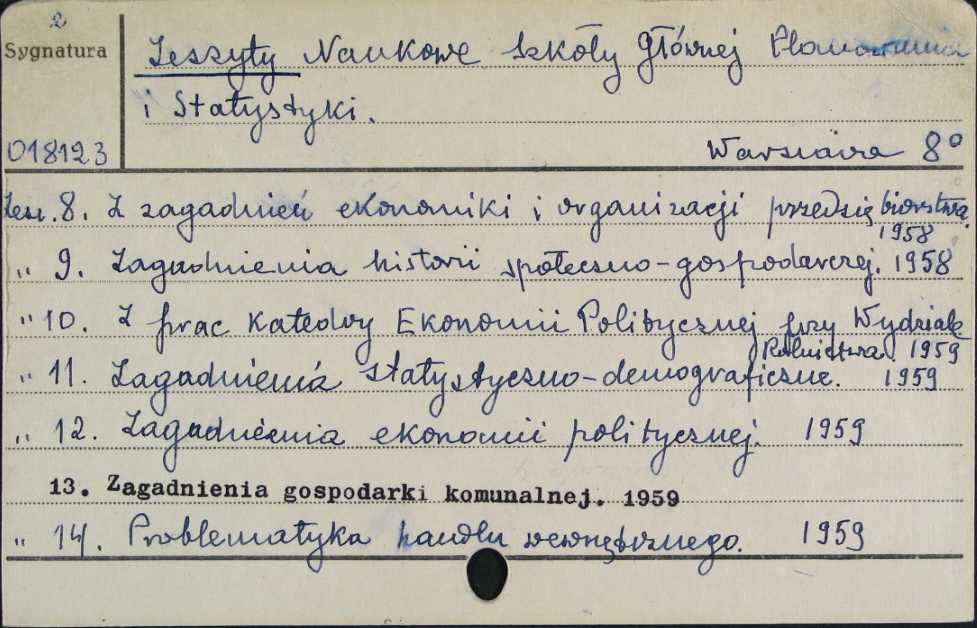 2
Sygnatura
Zeszyty Naukowe Szkoły Głównej Planowania
i Statystyki.
018123
Warszawa 8°
Zesz. 8. Z zagadnień ekonomiki i organizacji przedsiębiorstwa.
1958
„ 9. Zagadnienia historii społeczno-gospodarczej. 1958
„ 10. Z prac Katedry Ekonomii Politycznej przy Wydziale
Rolnictwa. 1959
„ 11. Zagadnienia statystyczno-demograficzne. 1959
„ 12. Zagadnienia ekonomii politycznej. 1959
13. Zagadnienia gospodarki komunalnej. 1959
„ 14. Problematyka handlu wewnętrznego. 1959